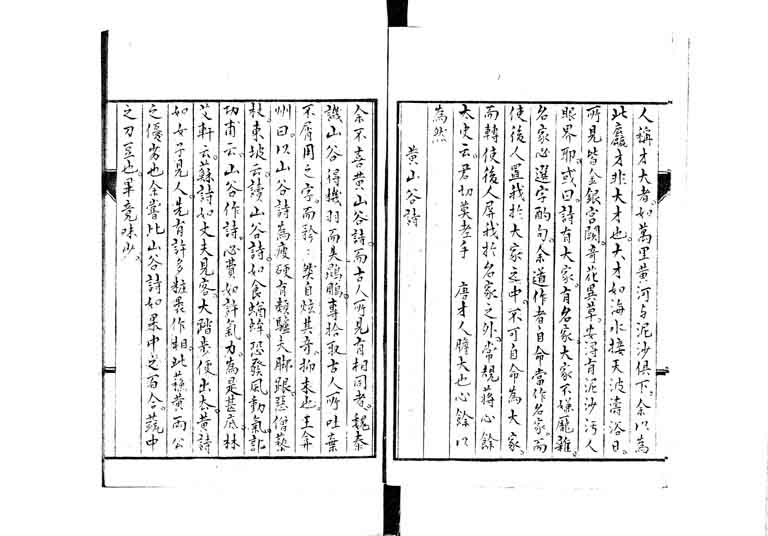 人稱才大者。如萬里黄河与泥沙俱下。余以為
此麤才非大才也。大才如海水接天波濤浴日。
所見皆金銀宫闕。奇花異草。安得有泥沙污人
眼界耶。或曰。詩有大家。有名家。大家不嫌龎雜。
名家必選字酌句。余道作者自命當作名家。而
使後人置我於大家之中。不可自命為大家。
而轉使後人屏我於名家之外。常規蔣心餘
太史云。君切莫老手 唐才人膽大也心餘以
為然
黄山谷詩
余不喜黄山谷詩。而古人所見有相同者。魏泰
譏山谷得機羽而失鵾鵬。專拾取古人所吐棄
不屑用之字。而矜矜然自炫其奇。抑末也。王弇
州曰。以山谷詩為瘦硬有類驢夫脚跟。惡僧藜
杖東坡云。讀山谷詩。如食蝤蛑。恐發風動氣。記
功甫云。山谷作詩。必費如許氣力。為是甚底。林
艾軒云。蘇詩如丈夫見客。大踏步便出去。黄詩
如女子見人。先有許多粧裹作相。此蘇黄兩公
之優劣也。余嘗比山谷詩。如果中之百合。蔬中
之刀豆也。畢竟味少。